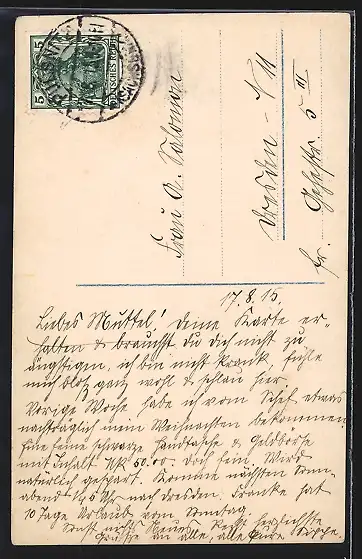 5 DEUTSCHES REICH 5
Frau A. Salomon
Dresden - A 11
Fr. 5 III
17.8.15.
Liebes Muttel! Deine Karte er-
halten & brauchst du dich nicht zu
ängstigen, ich bin nicht krank, fühle
mich bloß ganz wohl & schlau hier.
Vorige Woche habe ich vom Chef etwas
nachträglich mein Weihnachten bekommen.
Eine feine schwarze Handtasche & Geldbörse
mit Inhalt Mk 50.00. Doch fein. Wird
natürlich gespart. Komme nächsten Sonn-
abend 1/2 5 Uhr nach Dresden. Franke hat
10 Tage Urlaub vom Sonntag.
Sonst nichts Neues. Recht herzlichste
Grüße an alle, alle Eure